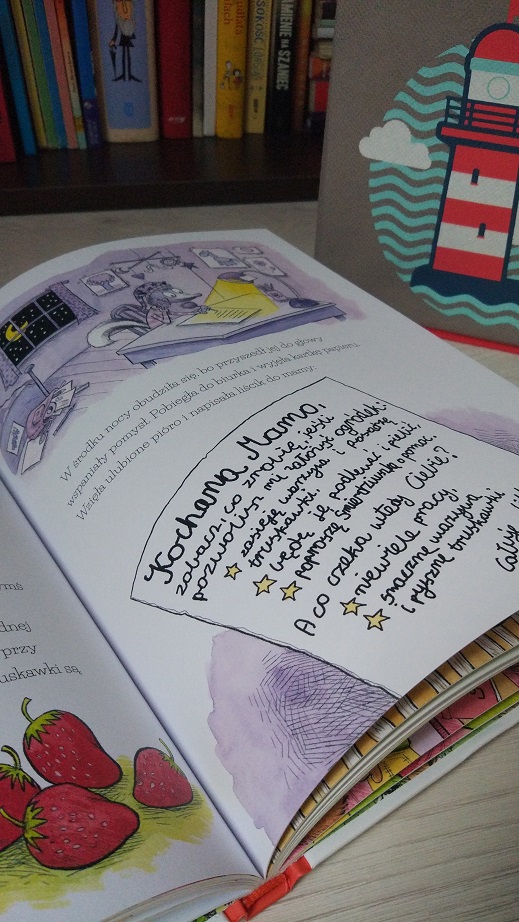 SOKOŚĆ
AMIENIE NA SZANIEC
W środku nocy obudziła się, bo przyszedł jej do głowy
wspaniały pomysł. Pobiegła do biurka i wyjęła kartkę papieru.
Wzięła ulubione pióro i napisała liścik do mamy:
Kochana Mamo,
zobacz, co zrobię, jeśli
pozwolisz mi założyć ogródek:
zasieję warzywa i posadzę
truskawki.
będę je podlewać i pielić,
poproszę
o pomoc.
A co czeka wtedy Ciebie?
niewiele pracy
smaczne warzywa
i pyszne truskawki
Całuję
ymś
dnej
przy
uskawki są